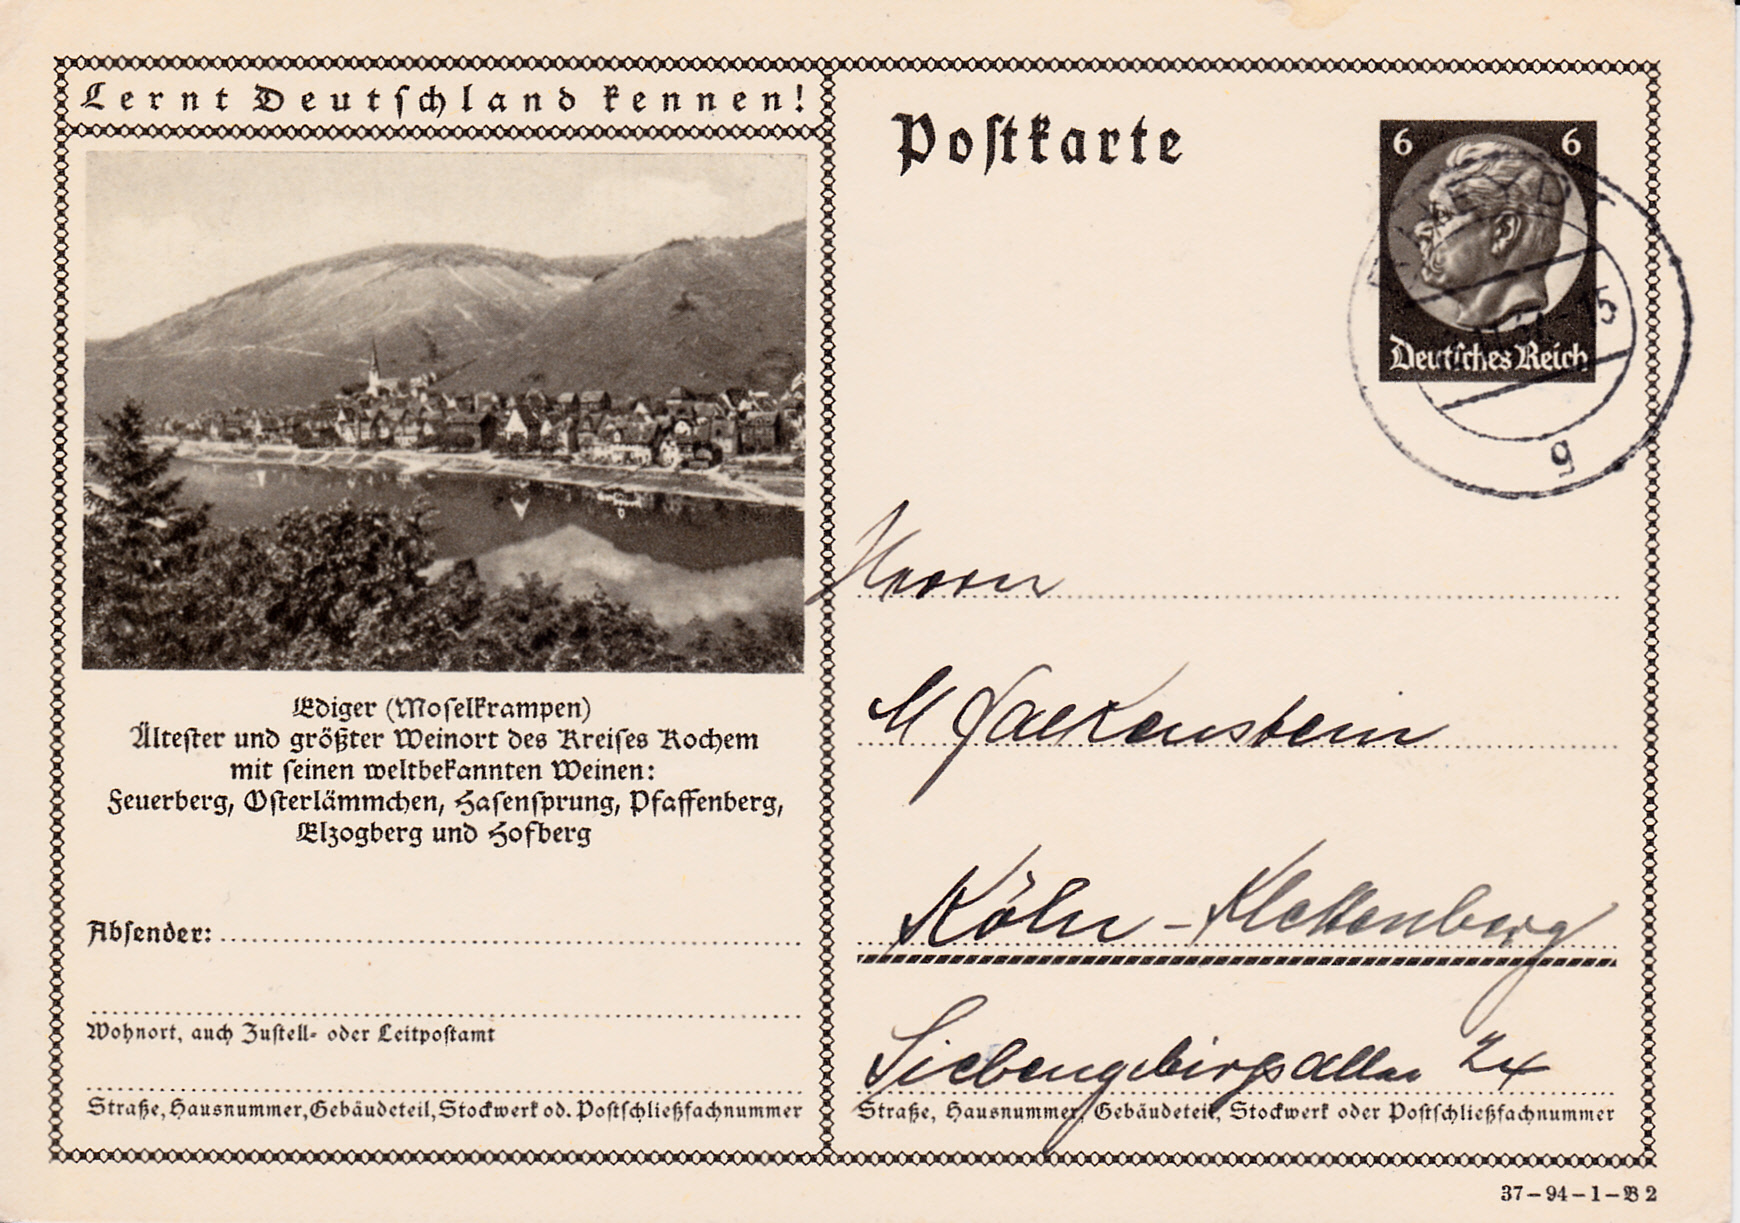 Lernt Deutschland kennen!
Ediger (Moselkrampen)
Ältester und größter Weinort des Kreises Kochem
mit seinen weltbekannten Weinen:
Feuerberg, Osterlämmchen, Hasensprung, Pfaffenberg,
Elzogberg und Hofberg
Absender:
Wohnort, auch Zustell- oder Leitpostamt
Straße, Hausnummer, Gebäudeteil, Stockwerk od. Postschließfachnummer
Postkarte
6 6
Deutsches Reich
g
Herrn
M Falkenstein
Köln-Klettenberg
Siebengebirgsallee 24
Straße, Hausnummer, Gebäudeteil, Stockwerk oder Postschließfachnummer
37-94-1-B 2